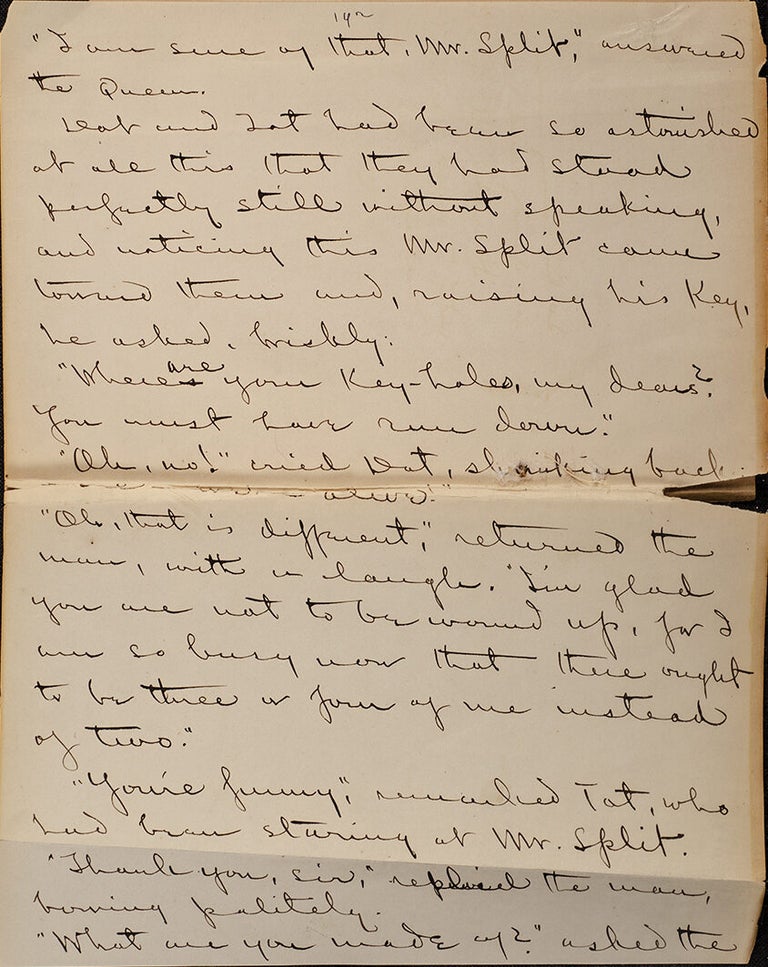 142
"I am sure of that, Mr. Split," answered
the Queen.
Dot and Tot had been so astonished
at all this that they had stood
perfectly still without speaking,
and noticing this Mr. Split came
toward them and, raising his Key,
he asked, briskly:
"Where are your Key-holes, my dears?
You must have run down."
"Oh, no!" cried Dot, shrinking back
alive."
"Oh, that is different," returned the
man, with a laugh. "I'm glad
you are not to be wound up, for I
am so busy now that there ought
to be three or four of me instead
of two."
"You're funny," remarked Tot, who
had been staring at Mr. Split.
"Thank you, sir," replied the man,
bowing politely.
"What are you made of?" asked the